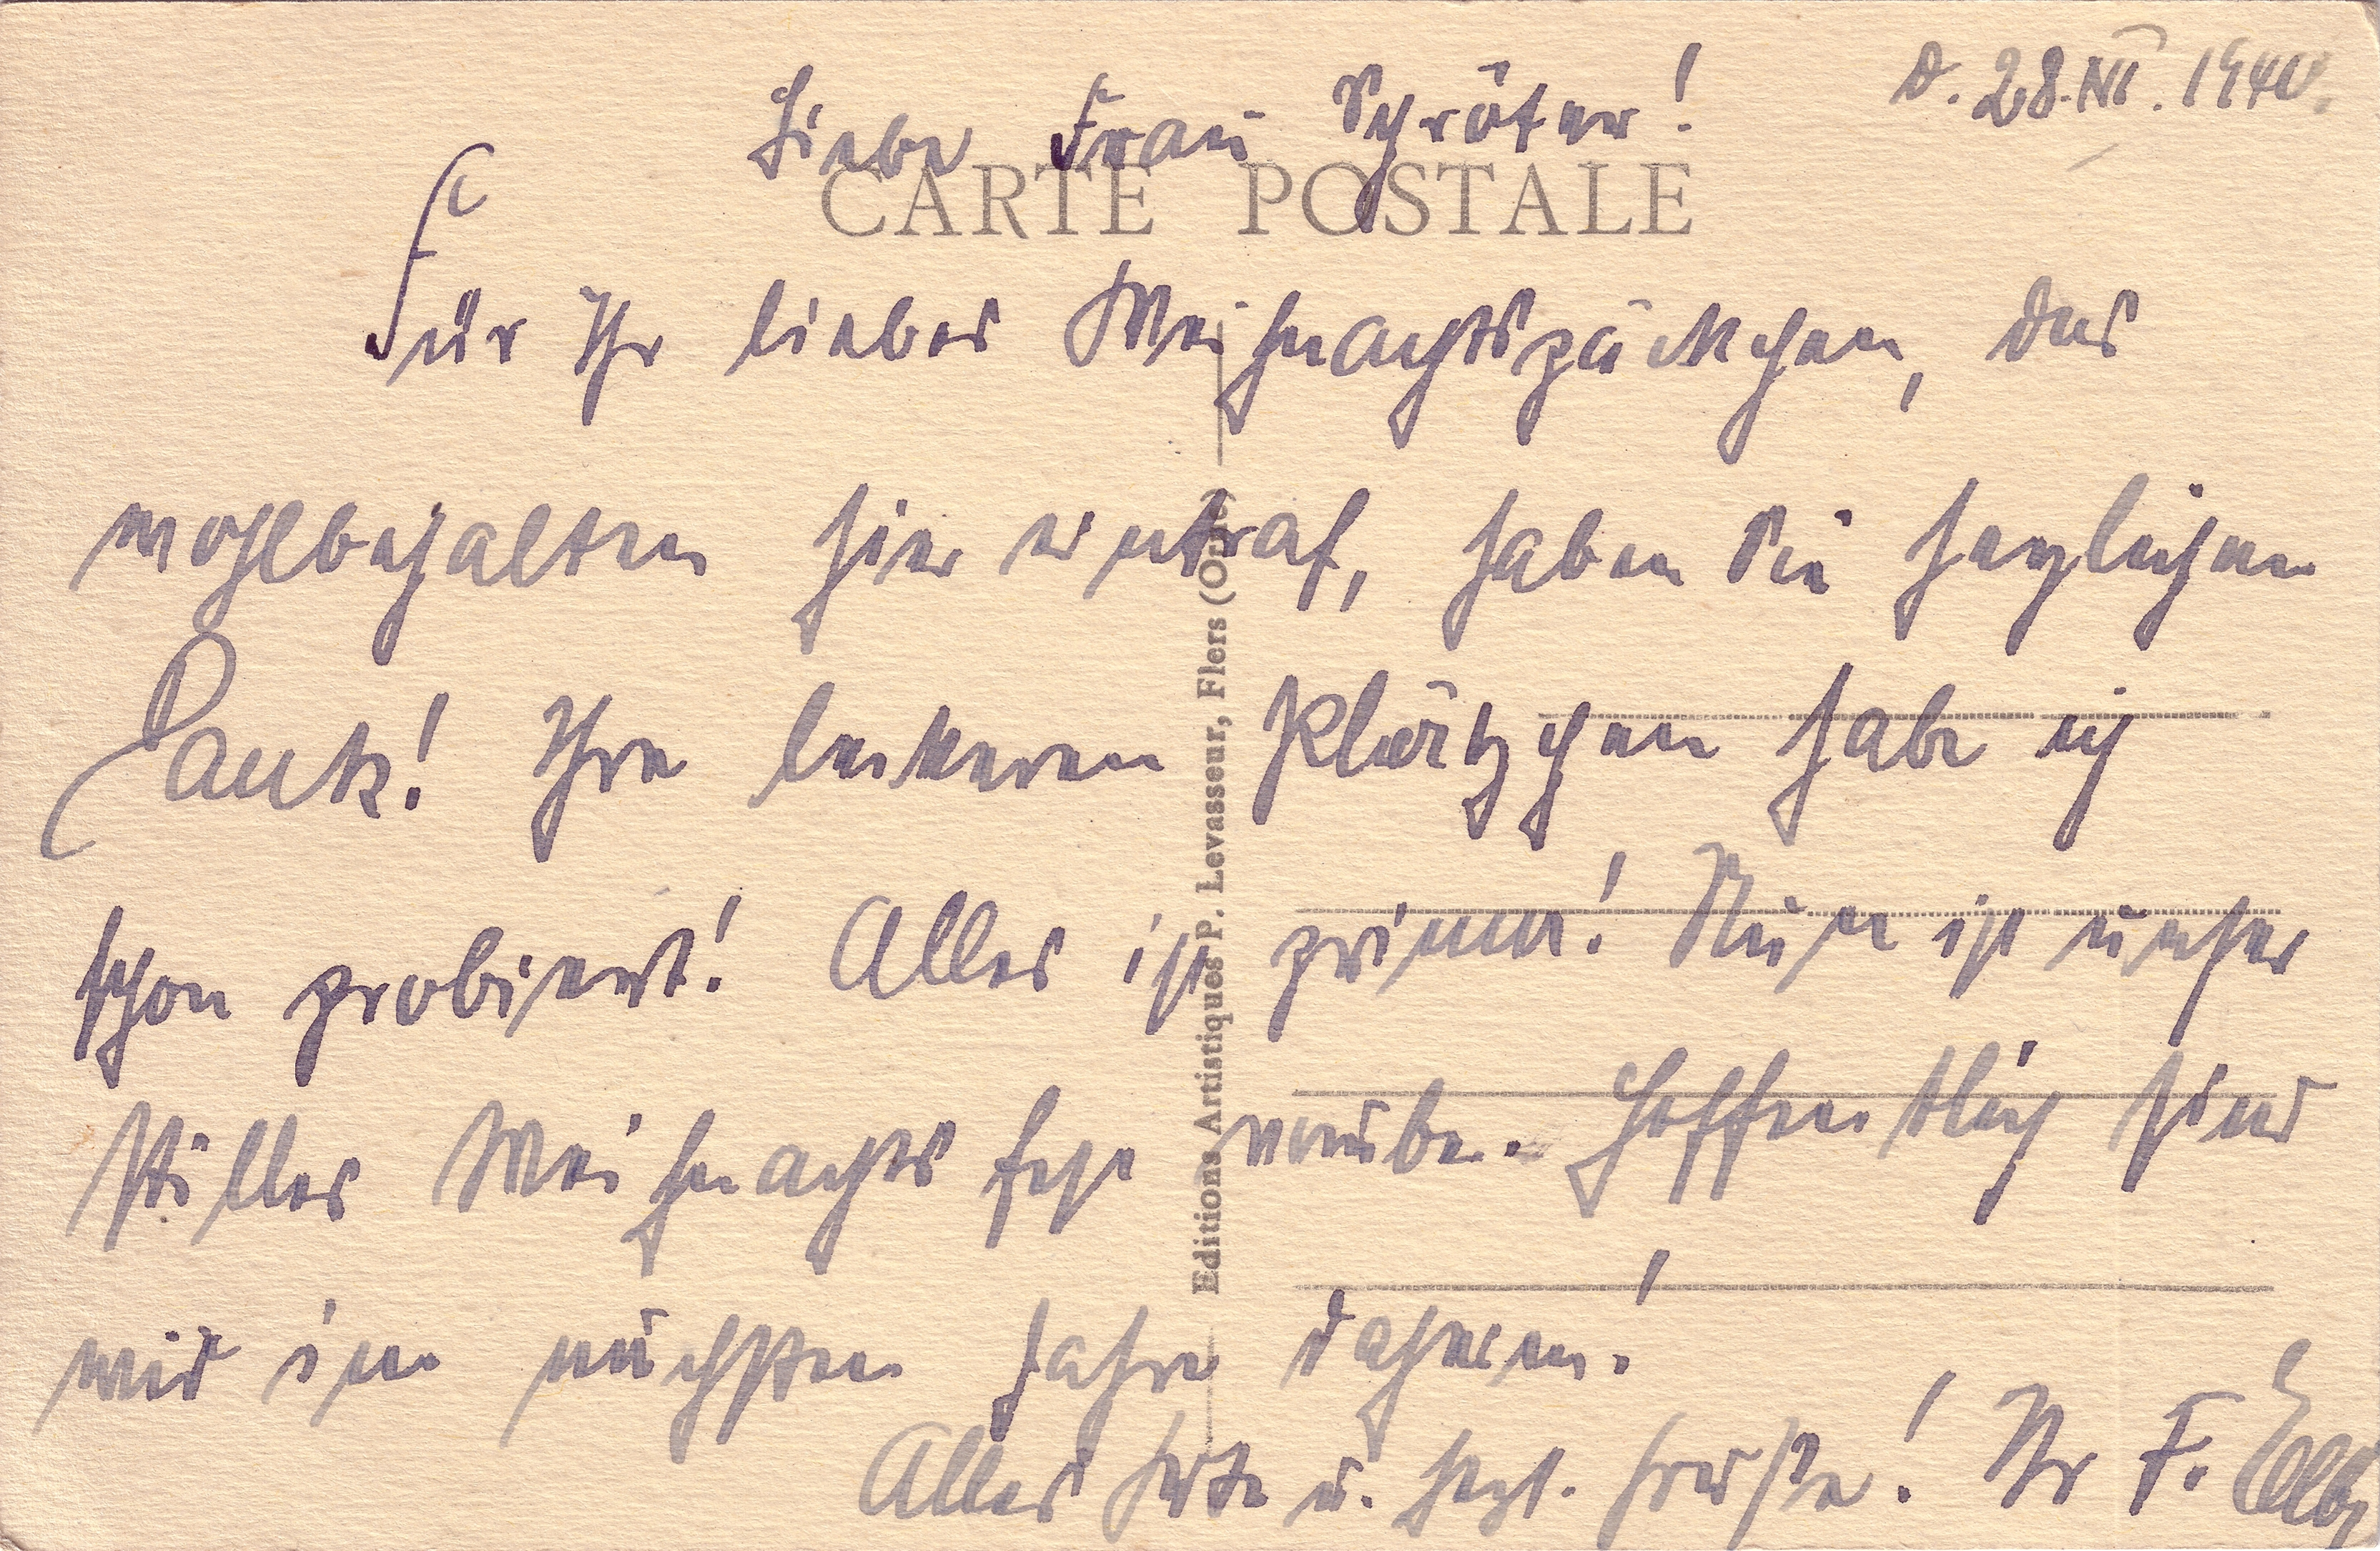 d. 28. XII. 1940.
Liebe Frau Schröter!
CARTE POSTALE
Für Ihr liebes Weihnachtspäckchen, das
wohlbehalten hier eintraf, haben Sie herzlichen
Dank! Ihre leckeren Plätzchen habe ich
schon probiert! Alles ist prima! Nun ist unser
stilles Weihnachtsfest vorüber. Hoffentlich sind
wir im nächsten Jahre daheim!
Alles Gute u. herzl. Grüße! Ihr F.
Editions Artistiques P. Levasseur, Flers (Orne)